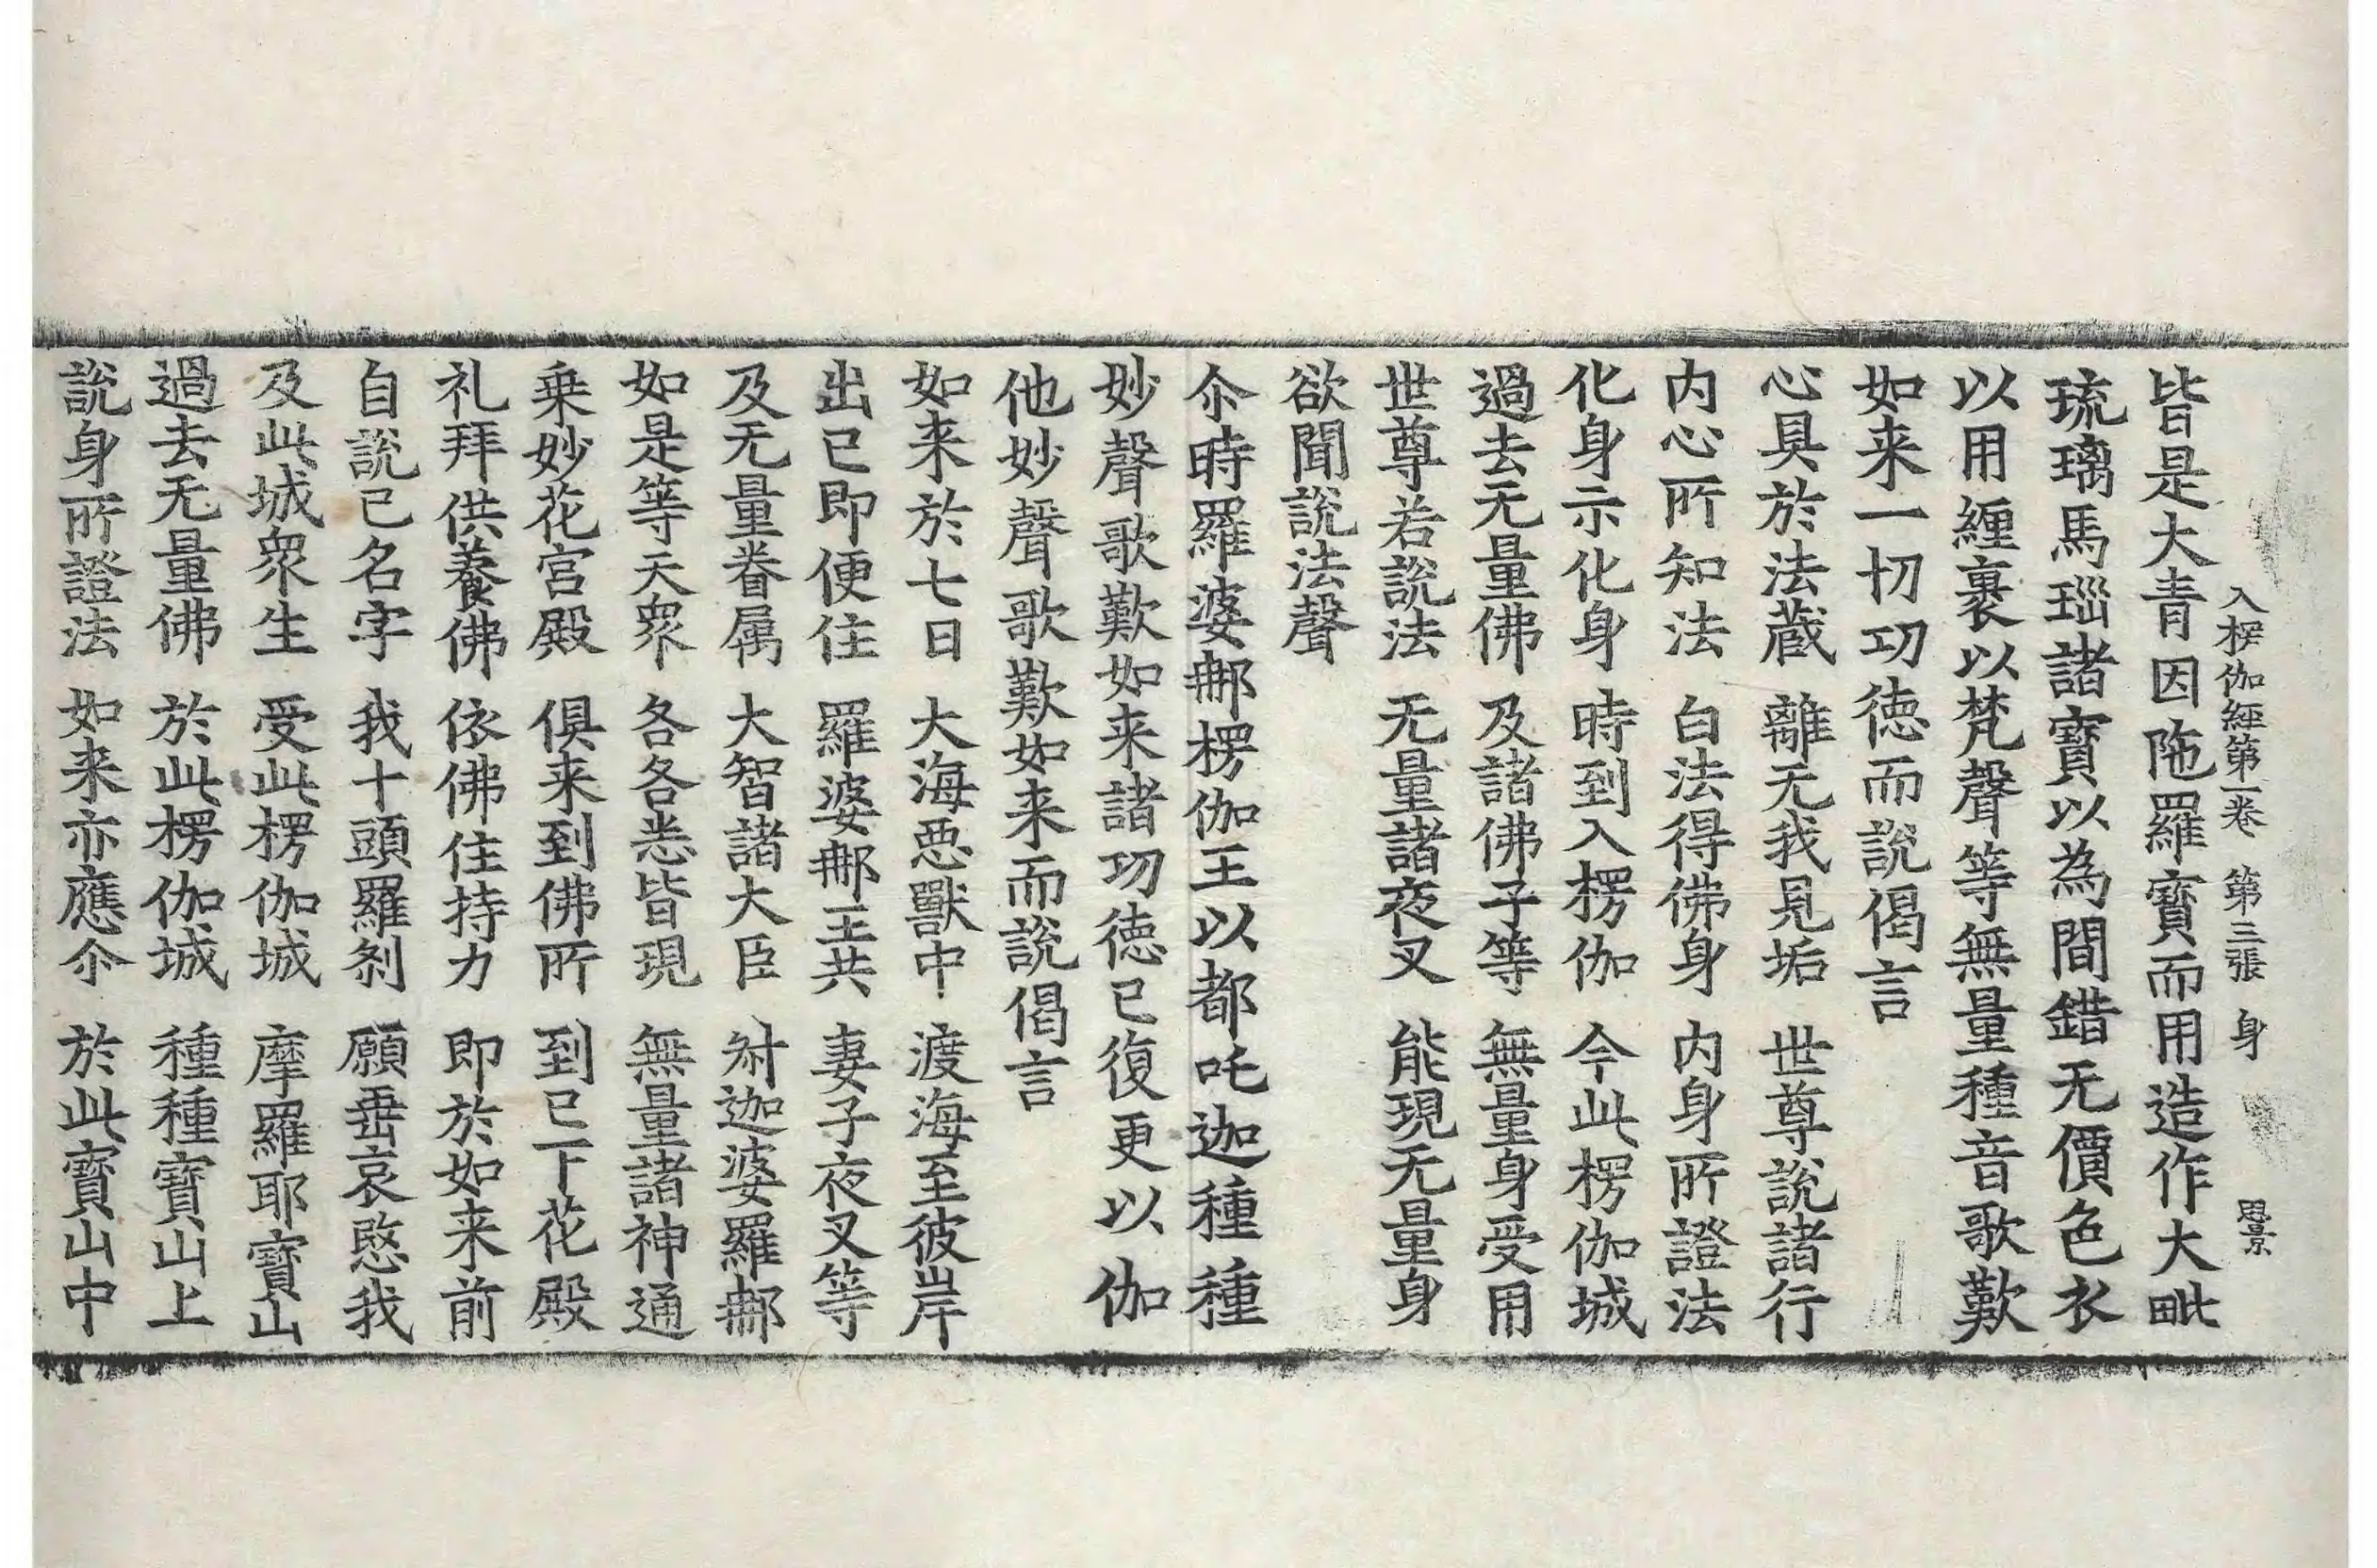 入楞伽經第一卷 第三張 身 思景
皆是大青因陁羅寶而用造作大毗
琉璃馬瑙諸寶以為間錯无價色衣
以用纏裹以梵聲等無量種音歌歎
如来一切功徳而說偈言
心具於法蔵 離无我見垢 世尊說諸行
内心所知法 白法得佛身 内身所證法
化身示化身 時到入楞伽 今此楞伽城
過去无量佛 及諸佛子等 無量身受用
世尊若說法 无量諸夜叉 能現无量身
欲聞說法聲
尒時羅婆𨚗楞伽王以都吒迦種種
妙聲歌歎如来諸功徳已復更以伽
他妙聲歌歎如来而說偈言
如来於七日 大海惡獸中 渡海至彼岸
出已即便住 羅婆𨚗王共 妻子夜叉等
及无量眷属 大智諸大臣 叔迦婆羅𨚗
如是等天衆 各各悉皆現 無量諸神通
乗妙花宮殿 俱来到佛所 到已下花殿
礼拜供養佛 依佛住持力 即於如来前
自說已名字 我十頭羅剎 願垂哀愍我
及此城衆生 受此楞伽城 摩羅耶寶山
過去无量佛 於此楞伽城 種種寶山上
說身所證法 如来亦應尒 於此寶山中